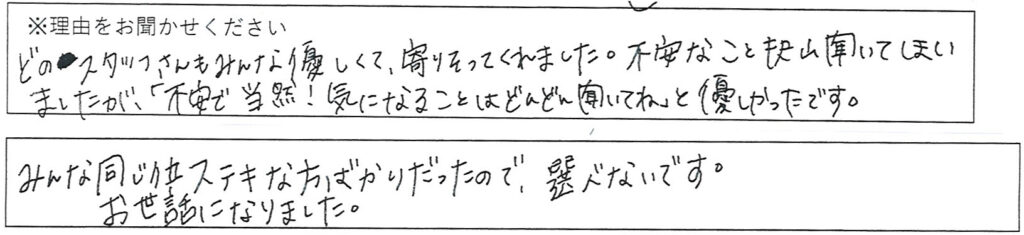 ※理由をお聞かせください
どのスタッフさんもみんな優しくて、寄りそってくれました。不安なことも沢山聞いてしまい
ましたが、「不安で当然！気になることはどんどん聞いてね」と優しかったです。
みんな同じ位ステキな方ばかりだったので、選べないです。
お世話になりました。